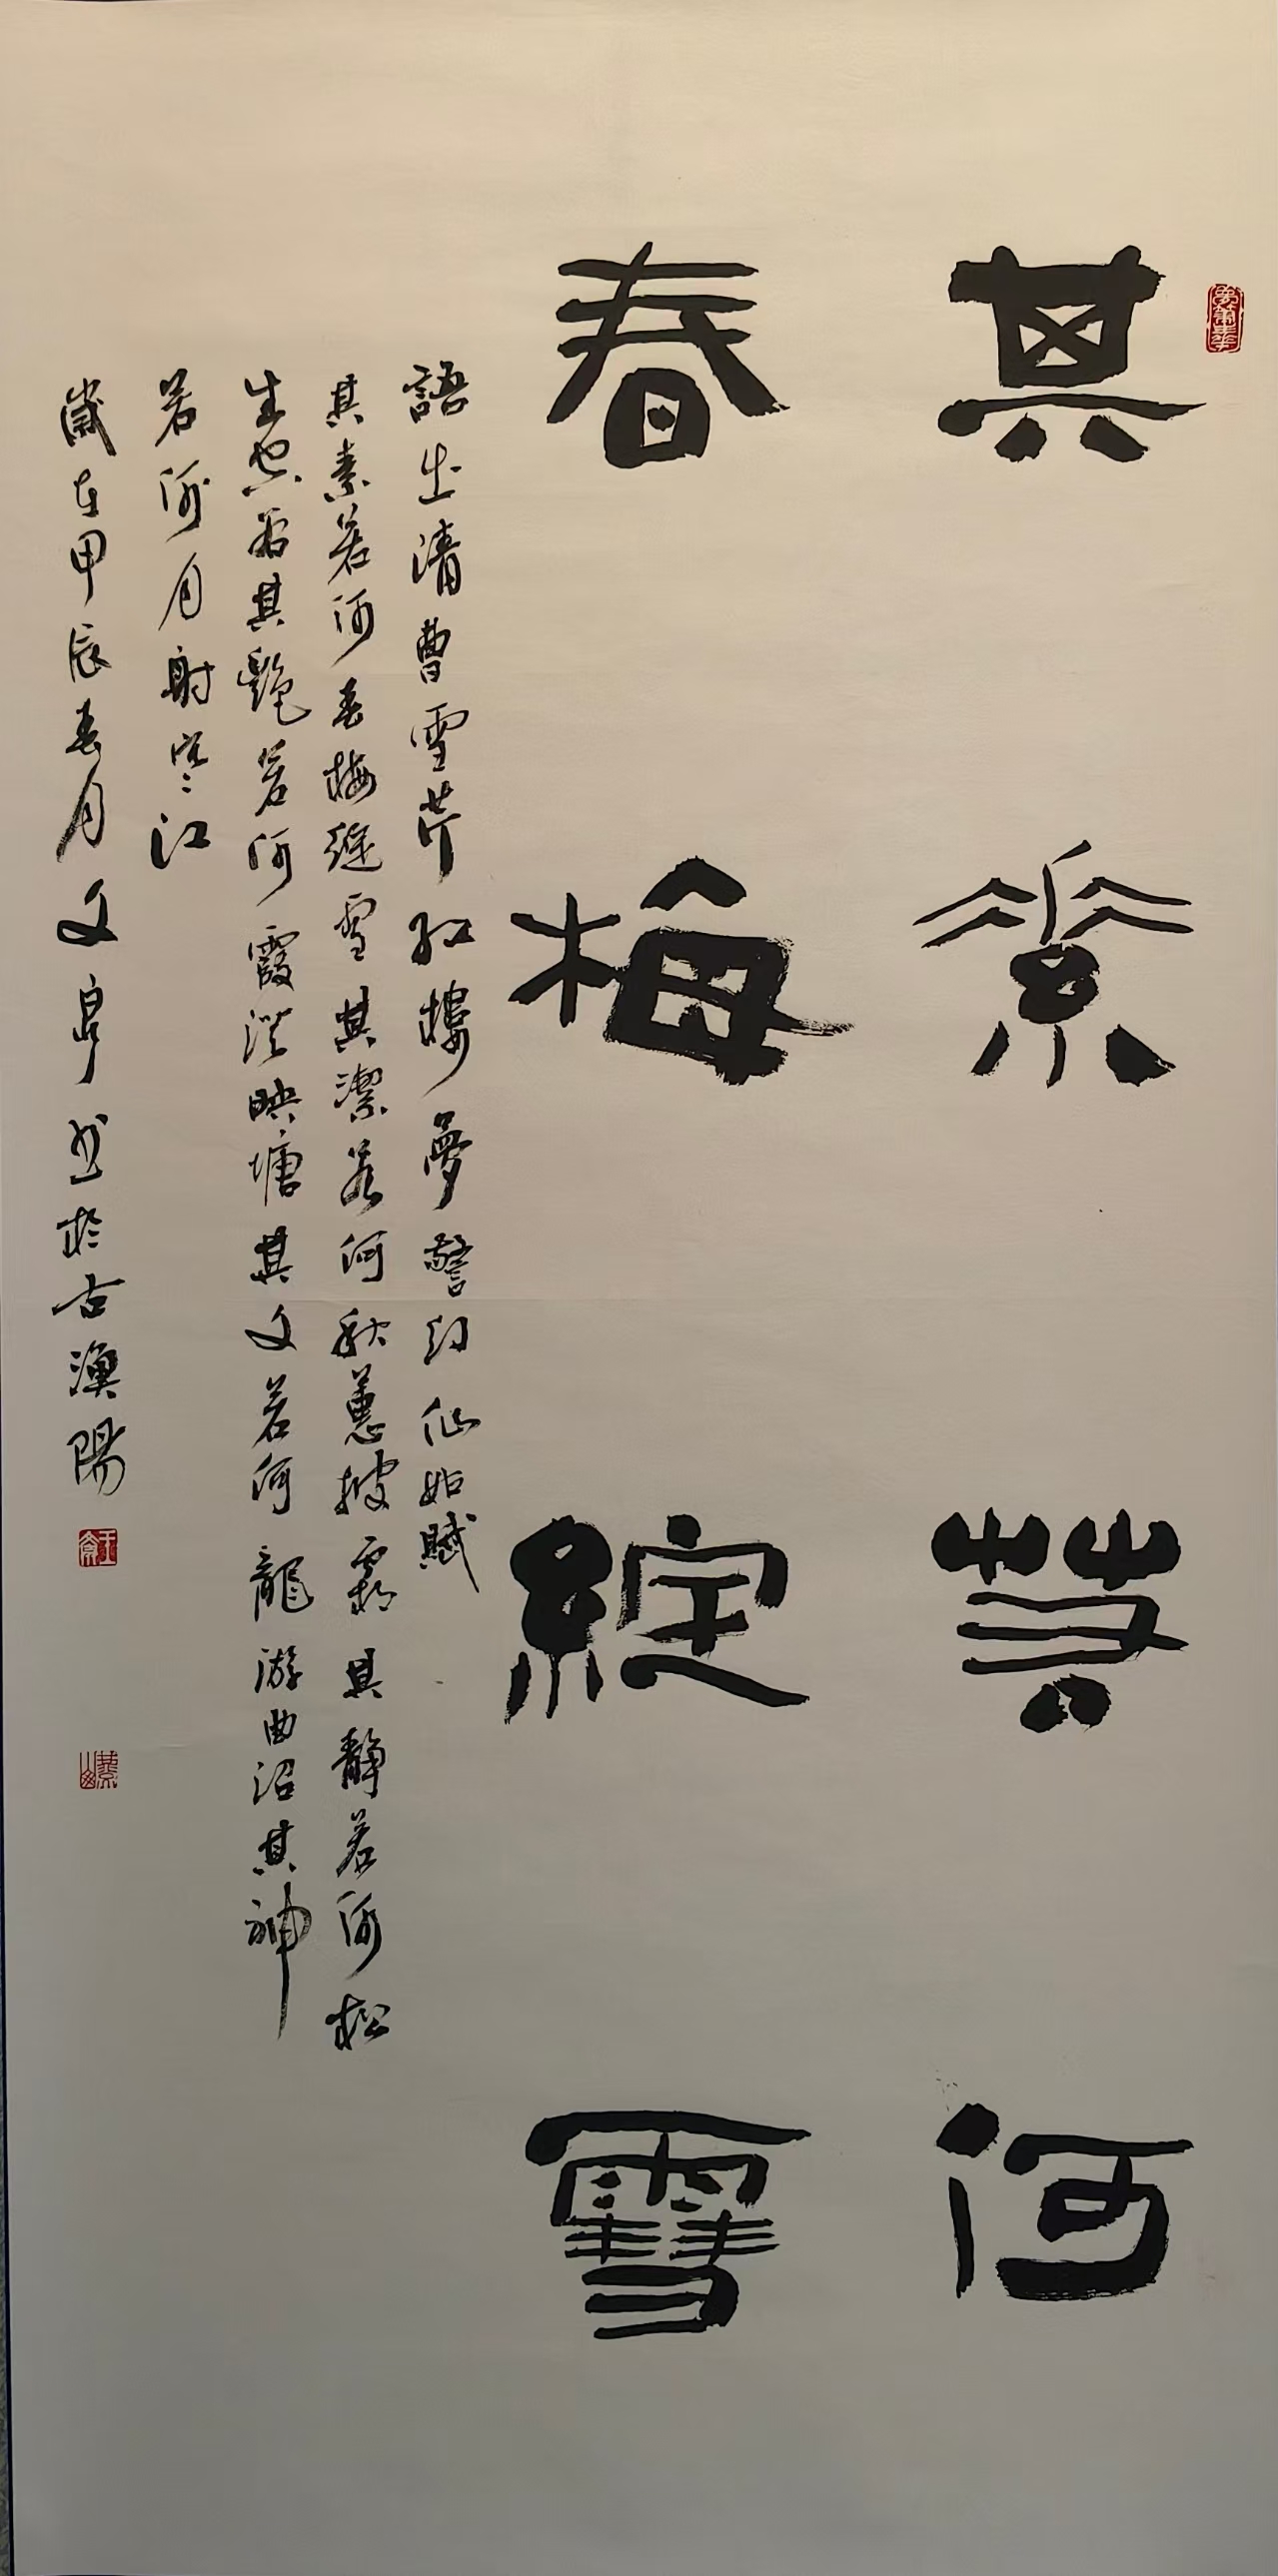 其素若何
春梅綻雪
語出清曹雪芹紅樓夢警幻仙姑賦
其素若何春梅綻雪其潔若何秋蕙披霜其靜若何松
生空谷其艷若何霞澄映塘其文若何龍游曲沼其神
若何月射寒江
歲在甲辰春月文泉书於古漁陽